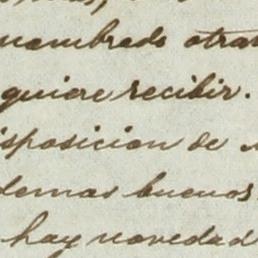 nombrado otra
quiere recibir.
isposicion de
demas buenos
hay novedad